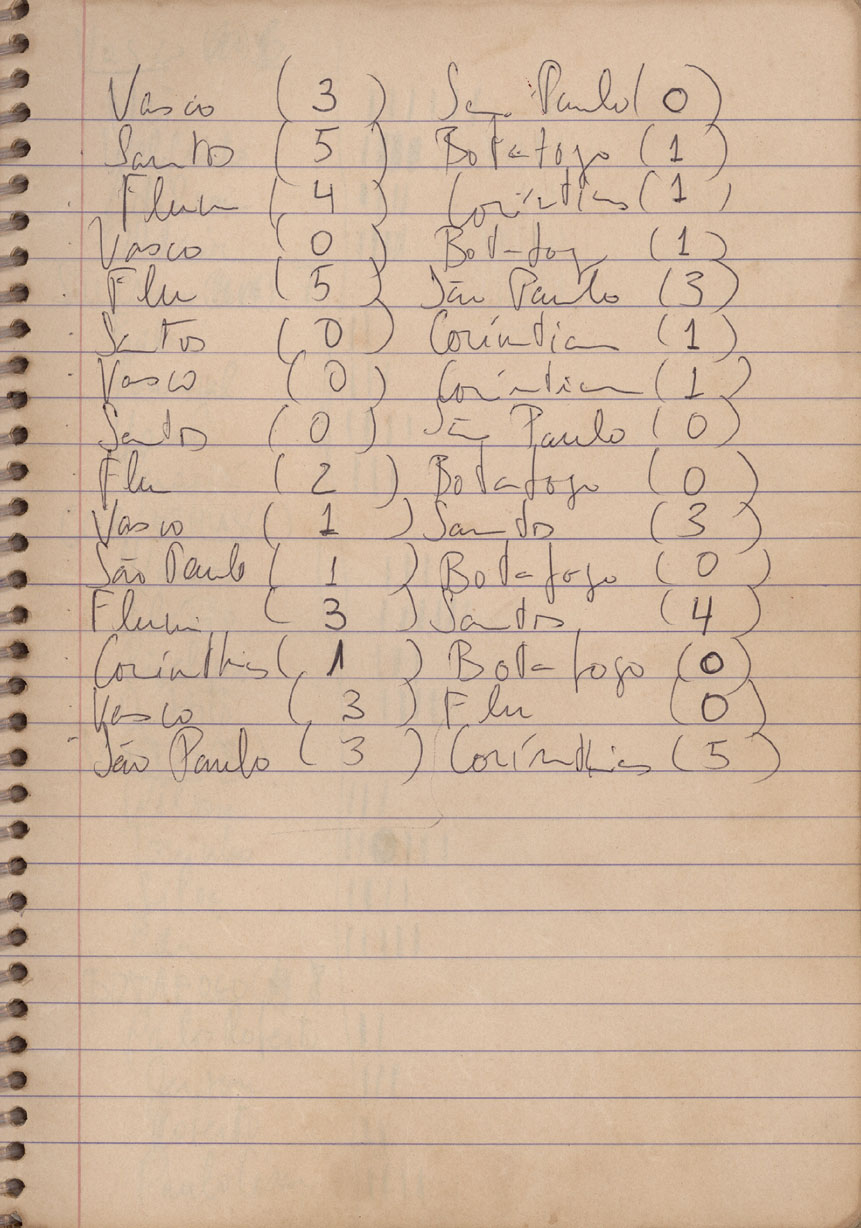 Vasco ( 3 ) São Paulo ( 0 )
Santos ( 5 ) Botafogo ( 1 )
Flum ( 4 ) Coríntias ( 1 )
Vasco ( 0 ) Botafog ( 1 )
Flu ( 5 ) São Paulo ( 3 )
Santos ( 0 ) Coríntian ( 1 )
Vasco ( 0 ) Coríntian ( 1 )
Santos ( 0 ) São Paulo ( 0 )
Flu ( 2 ) Botafogo ( 0 )
Vasco ( 1 ) Santos ( 3 )
São Paulo ( 1 ) Botafogo ( 0 )
Flumi ( 3 ) Santos ( 4 )
Corínthias ( 1 ) Botafogo ( 0 )
Vasco ( 3 ) Flu ( 0 )
São Paulo ( 3 ) Corínthias ( 5 )